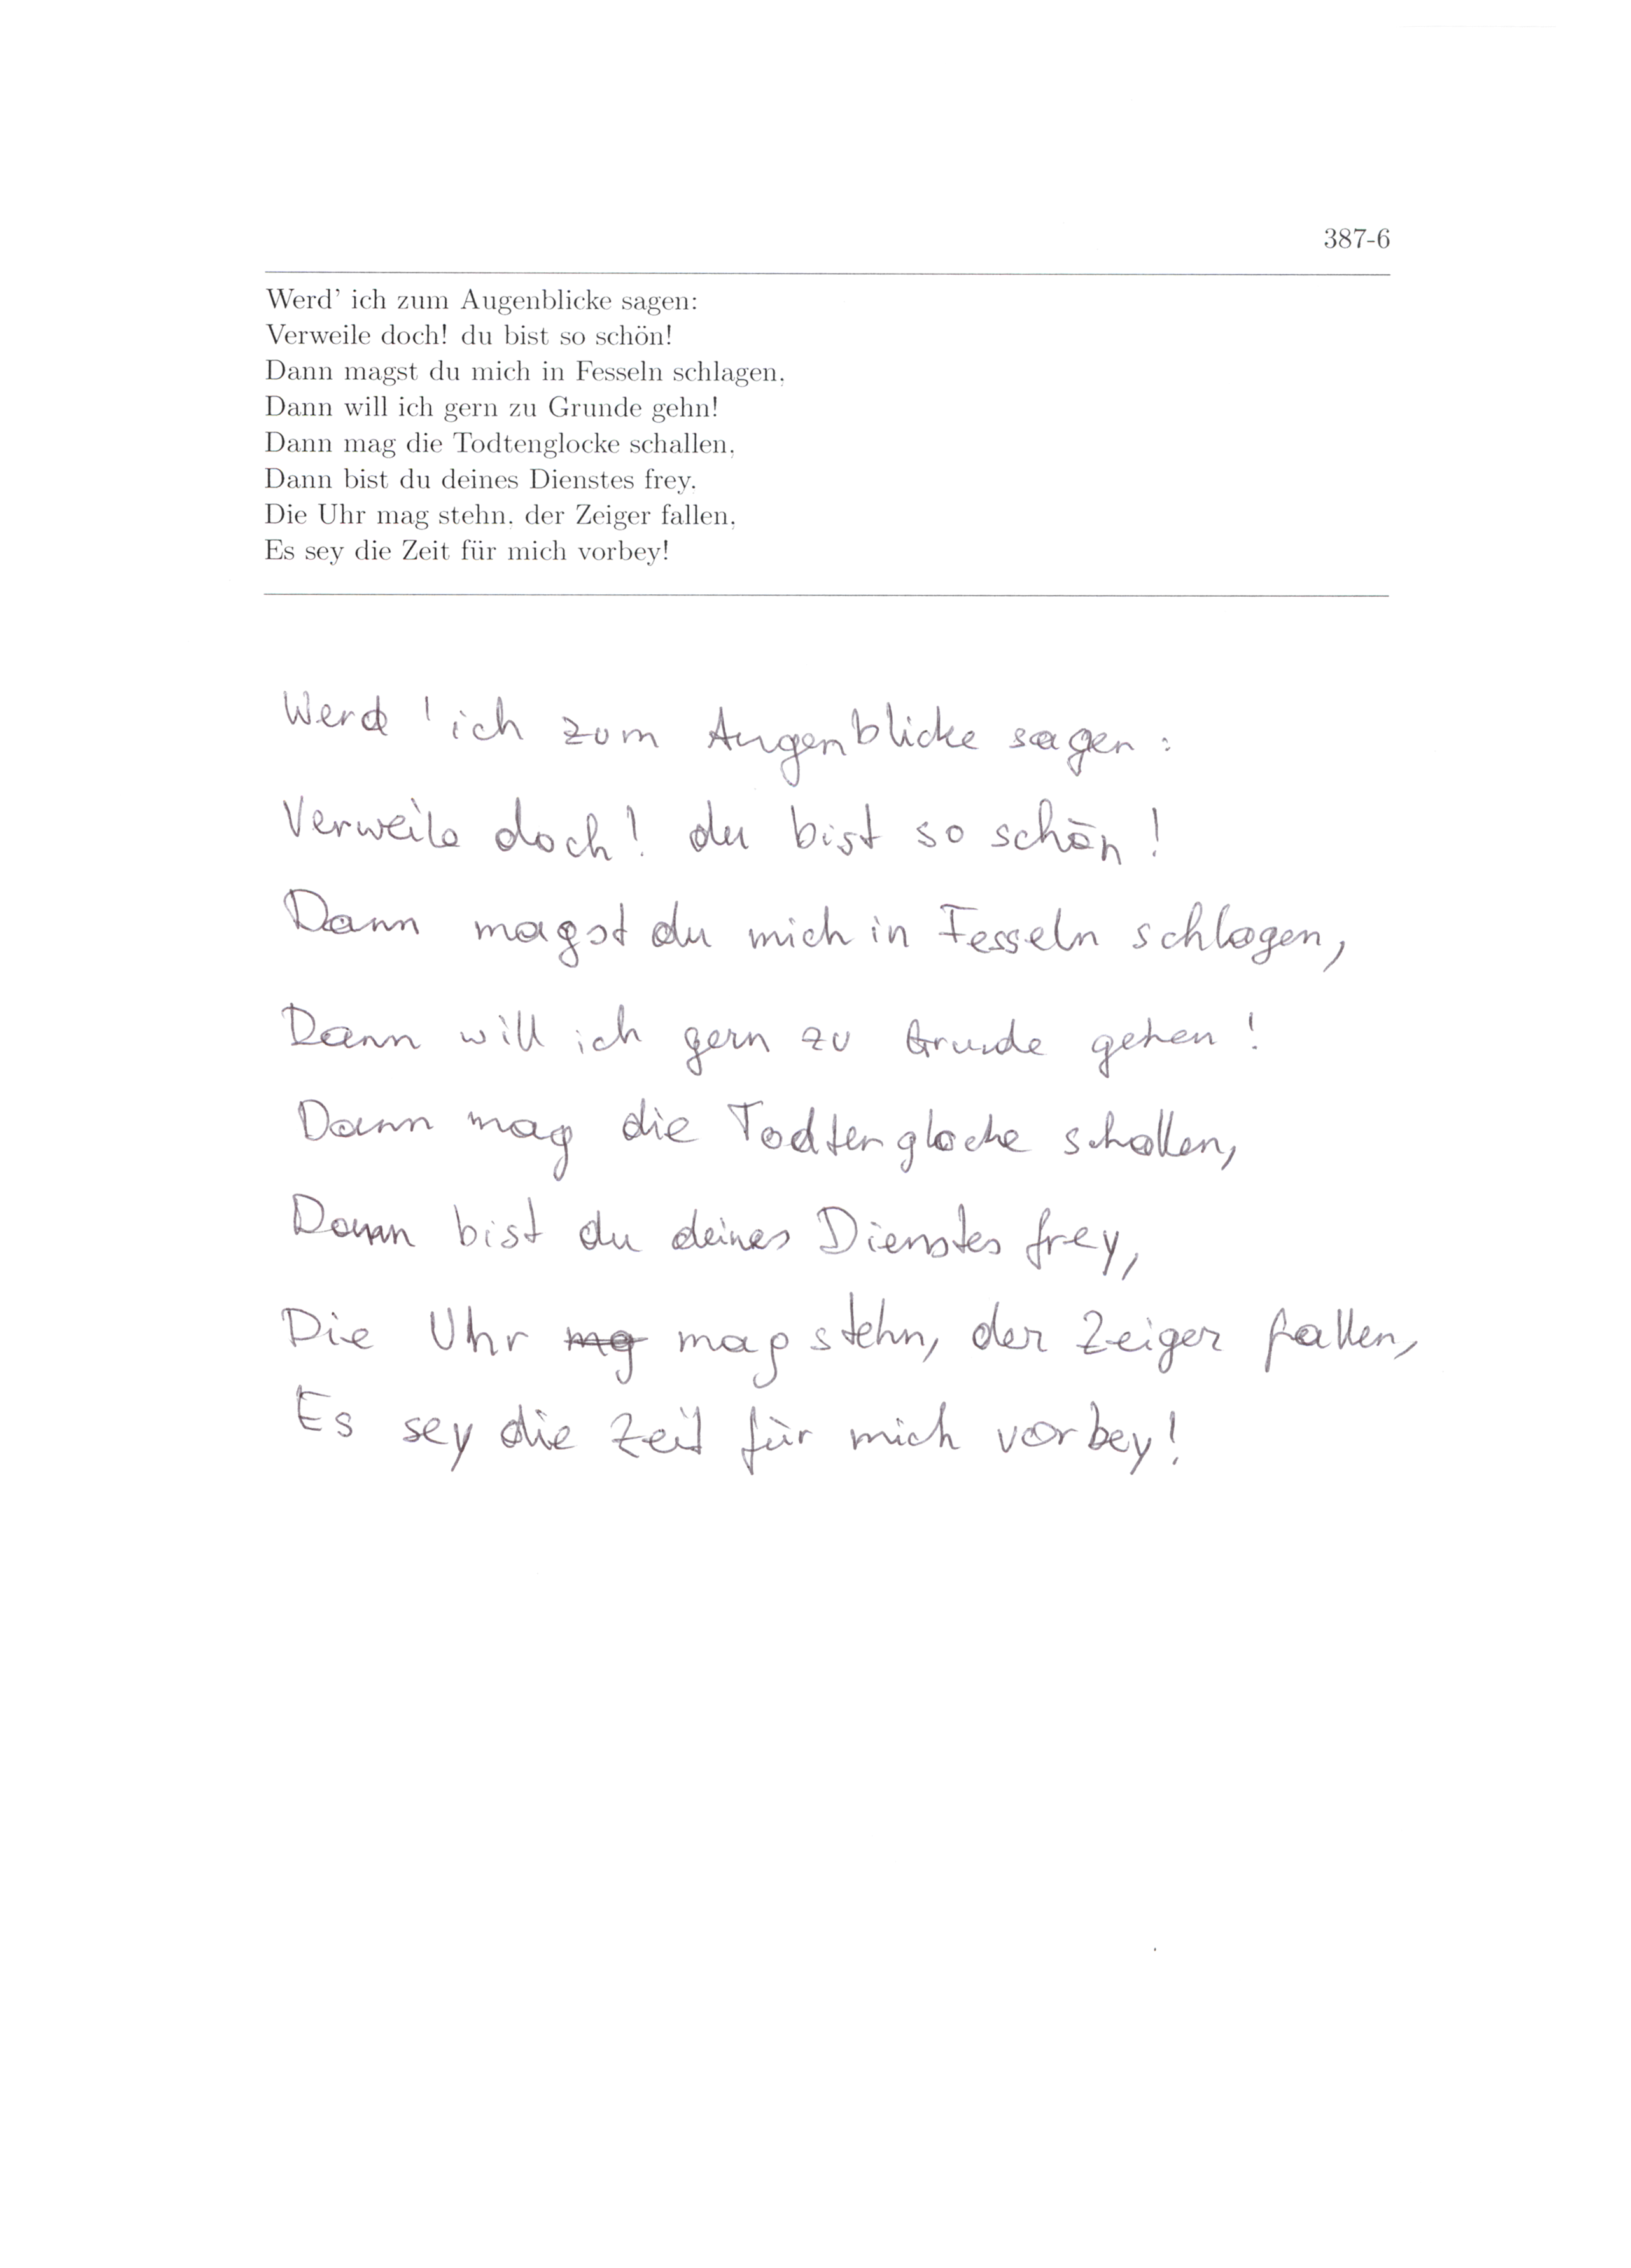 387-6
Werd' ich zum Augenblicke sagen:
Verweile doch! du bist so schön!
Dann magst du mich in Fesseln schlagen,
Dann will ich gern zu Grunde gehn!
Dann mag die Todtenglocke schallen,
Dann bist du deines Dienstes frey.
Die Uhr mag stehn, der Zeiger fallen,
Es sey die Zeit für mich vorbey!
Werd ' ich zum Augenblicke sagen :
Verweile doch! du bist so schön!
Dann magst du mich in Fesseln schlagen,
Dann will ich gern zu Grunde gehen!
Dann mag die Todtenglocke schallen,
Dann bist du deines Dienstes frey,
Die Uhr mg mag stehn, der Zeiger fallen,
Es sey die Zeit für mich vorbey!